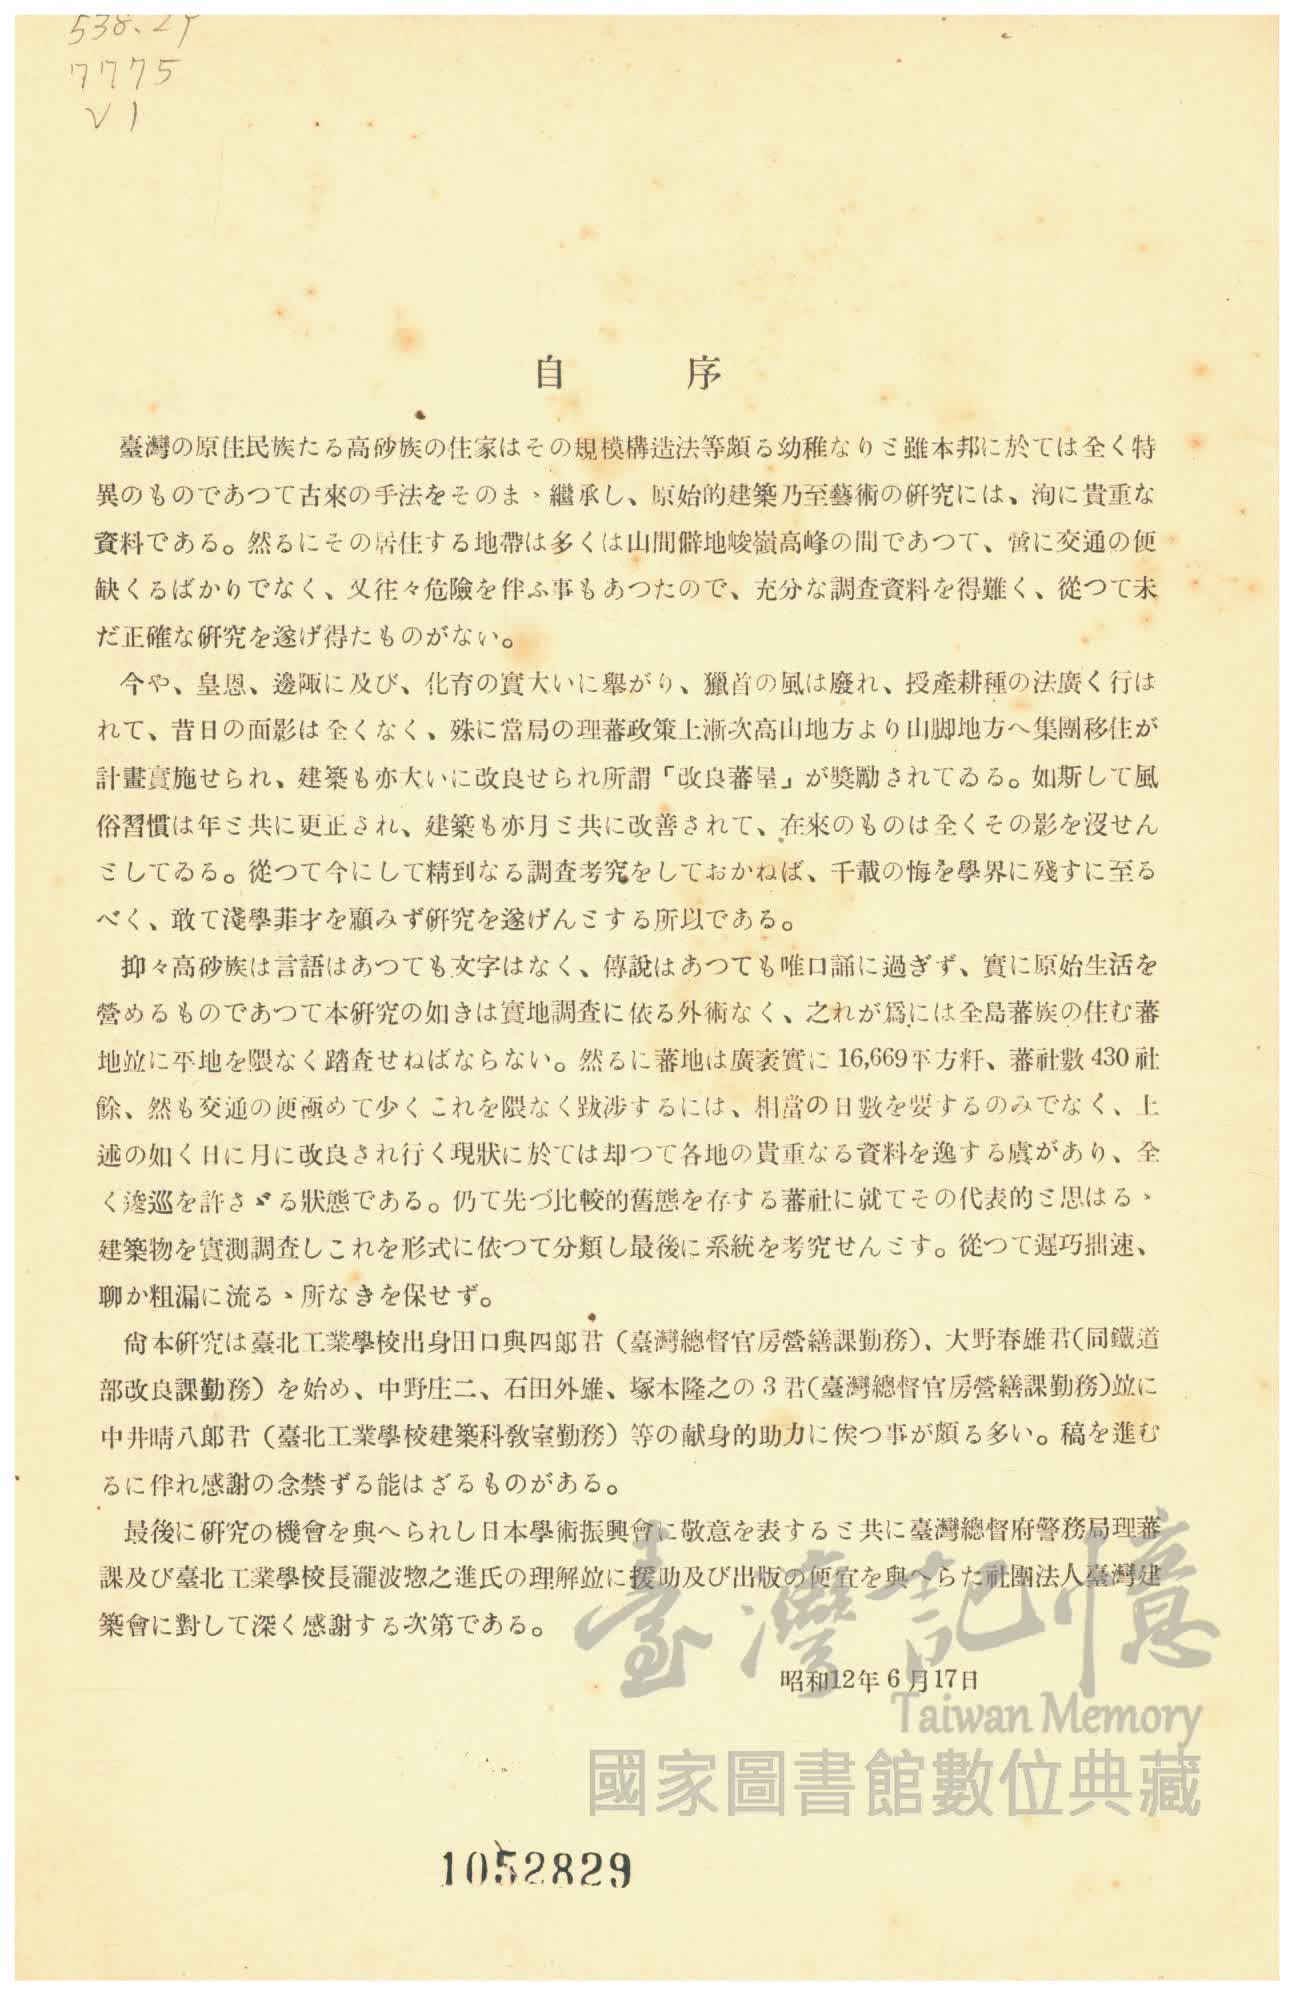 538.29
7775
V1
自 序
臺灣の原住民族たる高砂族の住家はその規模構造法等頗る幼稚なりと雖本邦に於ては全く特
異のものであつて古來の手法をそのまゝ繼承し、原始的建築乃至藝術の硏究には、洵に貴重な
資料である。然るにその居住する地帶は多くは山間僻地峻嶺高峰の間であつて、啻に交通の便
缺くるばかりでなく、又往々危險を伴ふ事もあつたので、充分な調査資料を得難く、從つて未
だ正確な硏究を遂げ得たものがない。
今や、皇恩、邊陬に及び、化育の實大いに擧がり、獵首の風は廢れ、授產耕種の法廣く行は
れて、昔日の面影は全くなく、殊に當局の理蕃政策上漸次高山地方より山脚地方へ集團移住が
計畫實施せられ、建築も亦大いに改良せられ所謂「改良蕃屋」が奬勵されてゐる。如斯して風
俗習慣は年と共に更正され、建築も亦月と共に改善されて、在來のものは全くその影を沒せん
としてゐる。從つて今にして精到なる調査考究をしておかねば、千載の悔を學界に殘すに至る
べく、敢て淺學菲才を顧みず硏究を遂げんとする所以である。
抑々高砂族は言語はあつても文字はなく、傳說はあつても唯口誦に過ぎず、實に原始生活を
營めるものであつて本硏究の如きは實地調査に依る外術なく、之れが爲には全島蕃族の住む蕃
地竝に平地を隈なく踏査せねばならない。然るに蕃地は廣袤實に 16,669平方粁、蕃社數 430 社
餘、然も交通の便極めて少くこれを隈なく跋涉するには、相當の日數を要するのみでなく、上
述の如く日に月に改良され行く現狀に於ては却つて各地の貴重なる資料を逸する虞があり、全
く逡巡を許さゞる狀態である。仍て先づ比較的舊態を存する蕃社に就てその代表的と思はるゝ
建築物を實測調査しこれを形式に依つて分類し最後に系統を考究せんとす。從つて遲巧拙速、
聊か粗漏に流るゝ所なきを保せず。
尙本硏究は臺北工業學校出身田口與四郎君（臺灣總督官房營繕課勤務）、大野春雄君（同鐵道
部改良課勤務）を始め、中野庄二、石田外雄、塚本隆之の３君（臺灣總督官房營繕課勤務）竝に
中井晴八郎君（臺北工業學校建築科敎室勤務）等の献身的助力に俟つ事が頗る多い。稿を進む
るに伴れ感謝の念禁ずる能はざるものがある。
最後に硏究の機會を與へられし日本學術振興會に敬意を表すると共に臺灣總督府警務局理蕃
課及び臺北工業學校長瀧波惣之進氏の理解竝に援助及び出版の便宜を與へらた社團法人臺灣建
築會に對して深く感謝する次第である。
昭和12年６月17日
臺灣記憶
Taiwan Memory
國家圖書館數位典藏
1052829